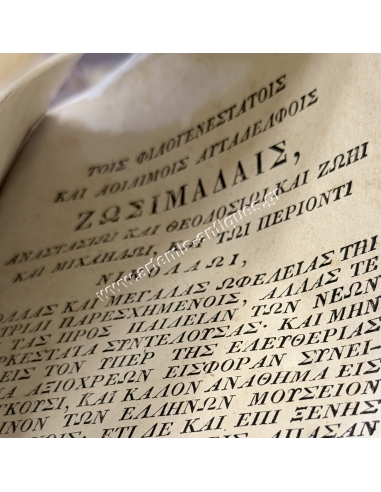 ΤΟΙΣ ΦΙΛΟΓΕΝΕΣΤΑΤΟΙΣ
ΚΑΙ ΑΟΙΔΙΜΟΙΣ ΑΥΤΑΔΕΛΦΟΙΣ
ΖΩΣΙΜΑΔΑΙΣ,
ΑΝΑΣΤΑΣΙΩΙ ΚΑΙ ΘΕΟΔΟΣΙΩΙ ΚΑΙ ΖΩΗΙ
ΚΑΙ ΜΙΧΑΗΛΩΙ, ΤΩΙ ΠΕΡΙΟΝΤΙ
ΝΙΚΟΛΑΩΙ,
ΚΑΙ ΜΕΓΑΛΑΣ ΩΦΕΛΕΙΑΣ ΤΗΙ
ΠΑΡΕΣΧΗΜΕΝΟΙΣ, ΑΛΛΑΣ ΤΕ
ΤΑΣ ΠΡΟΣ ΠΑΙΔΕΙΑΝ ΤΩΝ ΝΕΩΝ
ΣΥΝΤΕΛΟΥΣΑΣ· ΚΑΙ ΜΗΝ
ΕΙΣ ΤΟΝ ΥΠΕΡ ΤΗΣ ΕΛΕΥΘΕΡΙΑΣ
ΑΞΙΟΧΡΕΩΝ ΕΙΣΦΟΡΑΝ ΣΥΝΕΙ-
ΚΑΙ ΚΑΛΟΝ ΑΝΑΘΗΜΑ ΕΙΣ
ΤΩΝ ΕΛΛΗΝΩΝ ΜΟΥΣΕΙΟΝ
ΕΤΙ ΔΕ ΚΑΙ ΕΠΙ ΞΕΝΗΣ
ΑΠΑΣΑΝ
www.artemis-antiques.gr